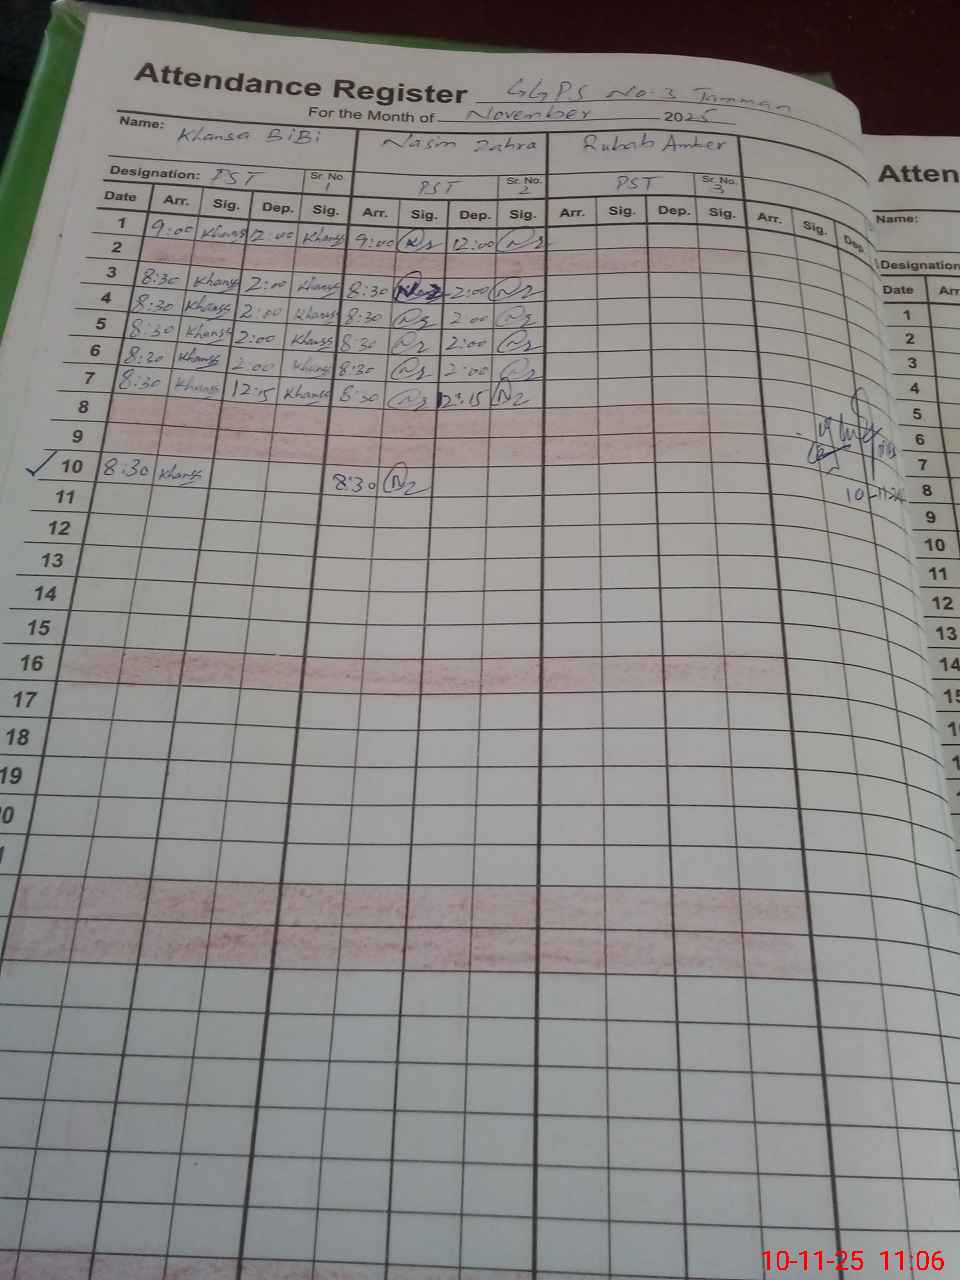 Attendance Register GGPS No-3 Tamman
For the Month of November 2025
Name: Khansa BiBi Nasim Zahra Rubab Amber
Designation: PST Sr. No. 1 PST Sr. No. 2 PST Sr. No. 3
Date Arr. Sig. Dep. Sig. Arr. Sig. Dep. Sig. Arr. Sig. Dep. Sig. Arr. Sig. Dep.
1 9:00 Khansa 12:00 Khansa 9:00 12:00
2
3 8:30 Khansa 2:00 Khansa 8:30 2:00
4 8:30 Khansa 2:00 Khansa 8:30 2:00
5 8:30 Khansa 2:00 Khansa 8:30 2:00
6 8:30 Khansa 2:00 Khansa 8:30 2:00
7 8:30 Khansa 12:15 Khansa 8:30 12:15
8
9
10 8:30 Khansa 8:30
11
12
13
14
15
16
17
18
19
0
1
Atten
Name:
Designation
Date Arr
1
2
3
4
5
6
7
8
9
10
11
12
13
14
15
1
1
10-11-25 11:06